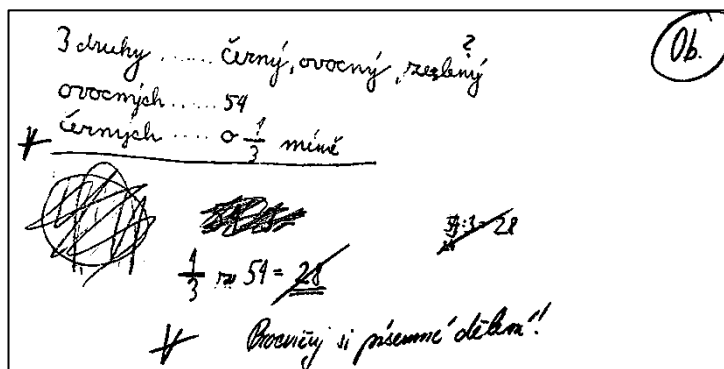 3 druhy ...... černý, ovocný, zelený ?
Ob.
ovocných ...... 54
černých ..... o 1/3 méně
54:3 = 28
1/3 ze 54 = 28
Procvičuj si písemné dělení!